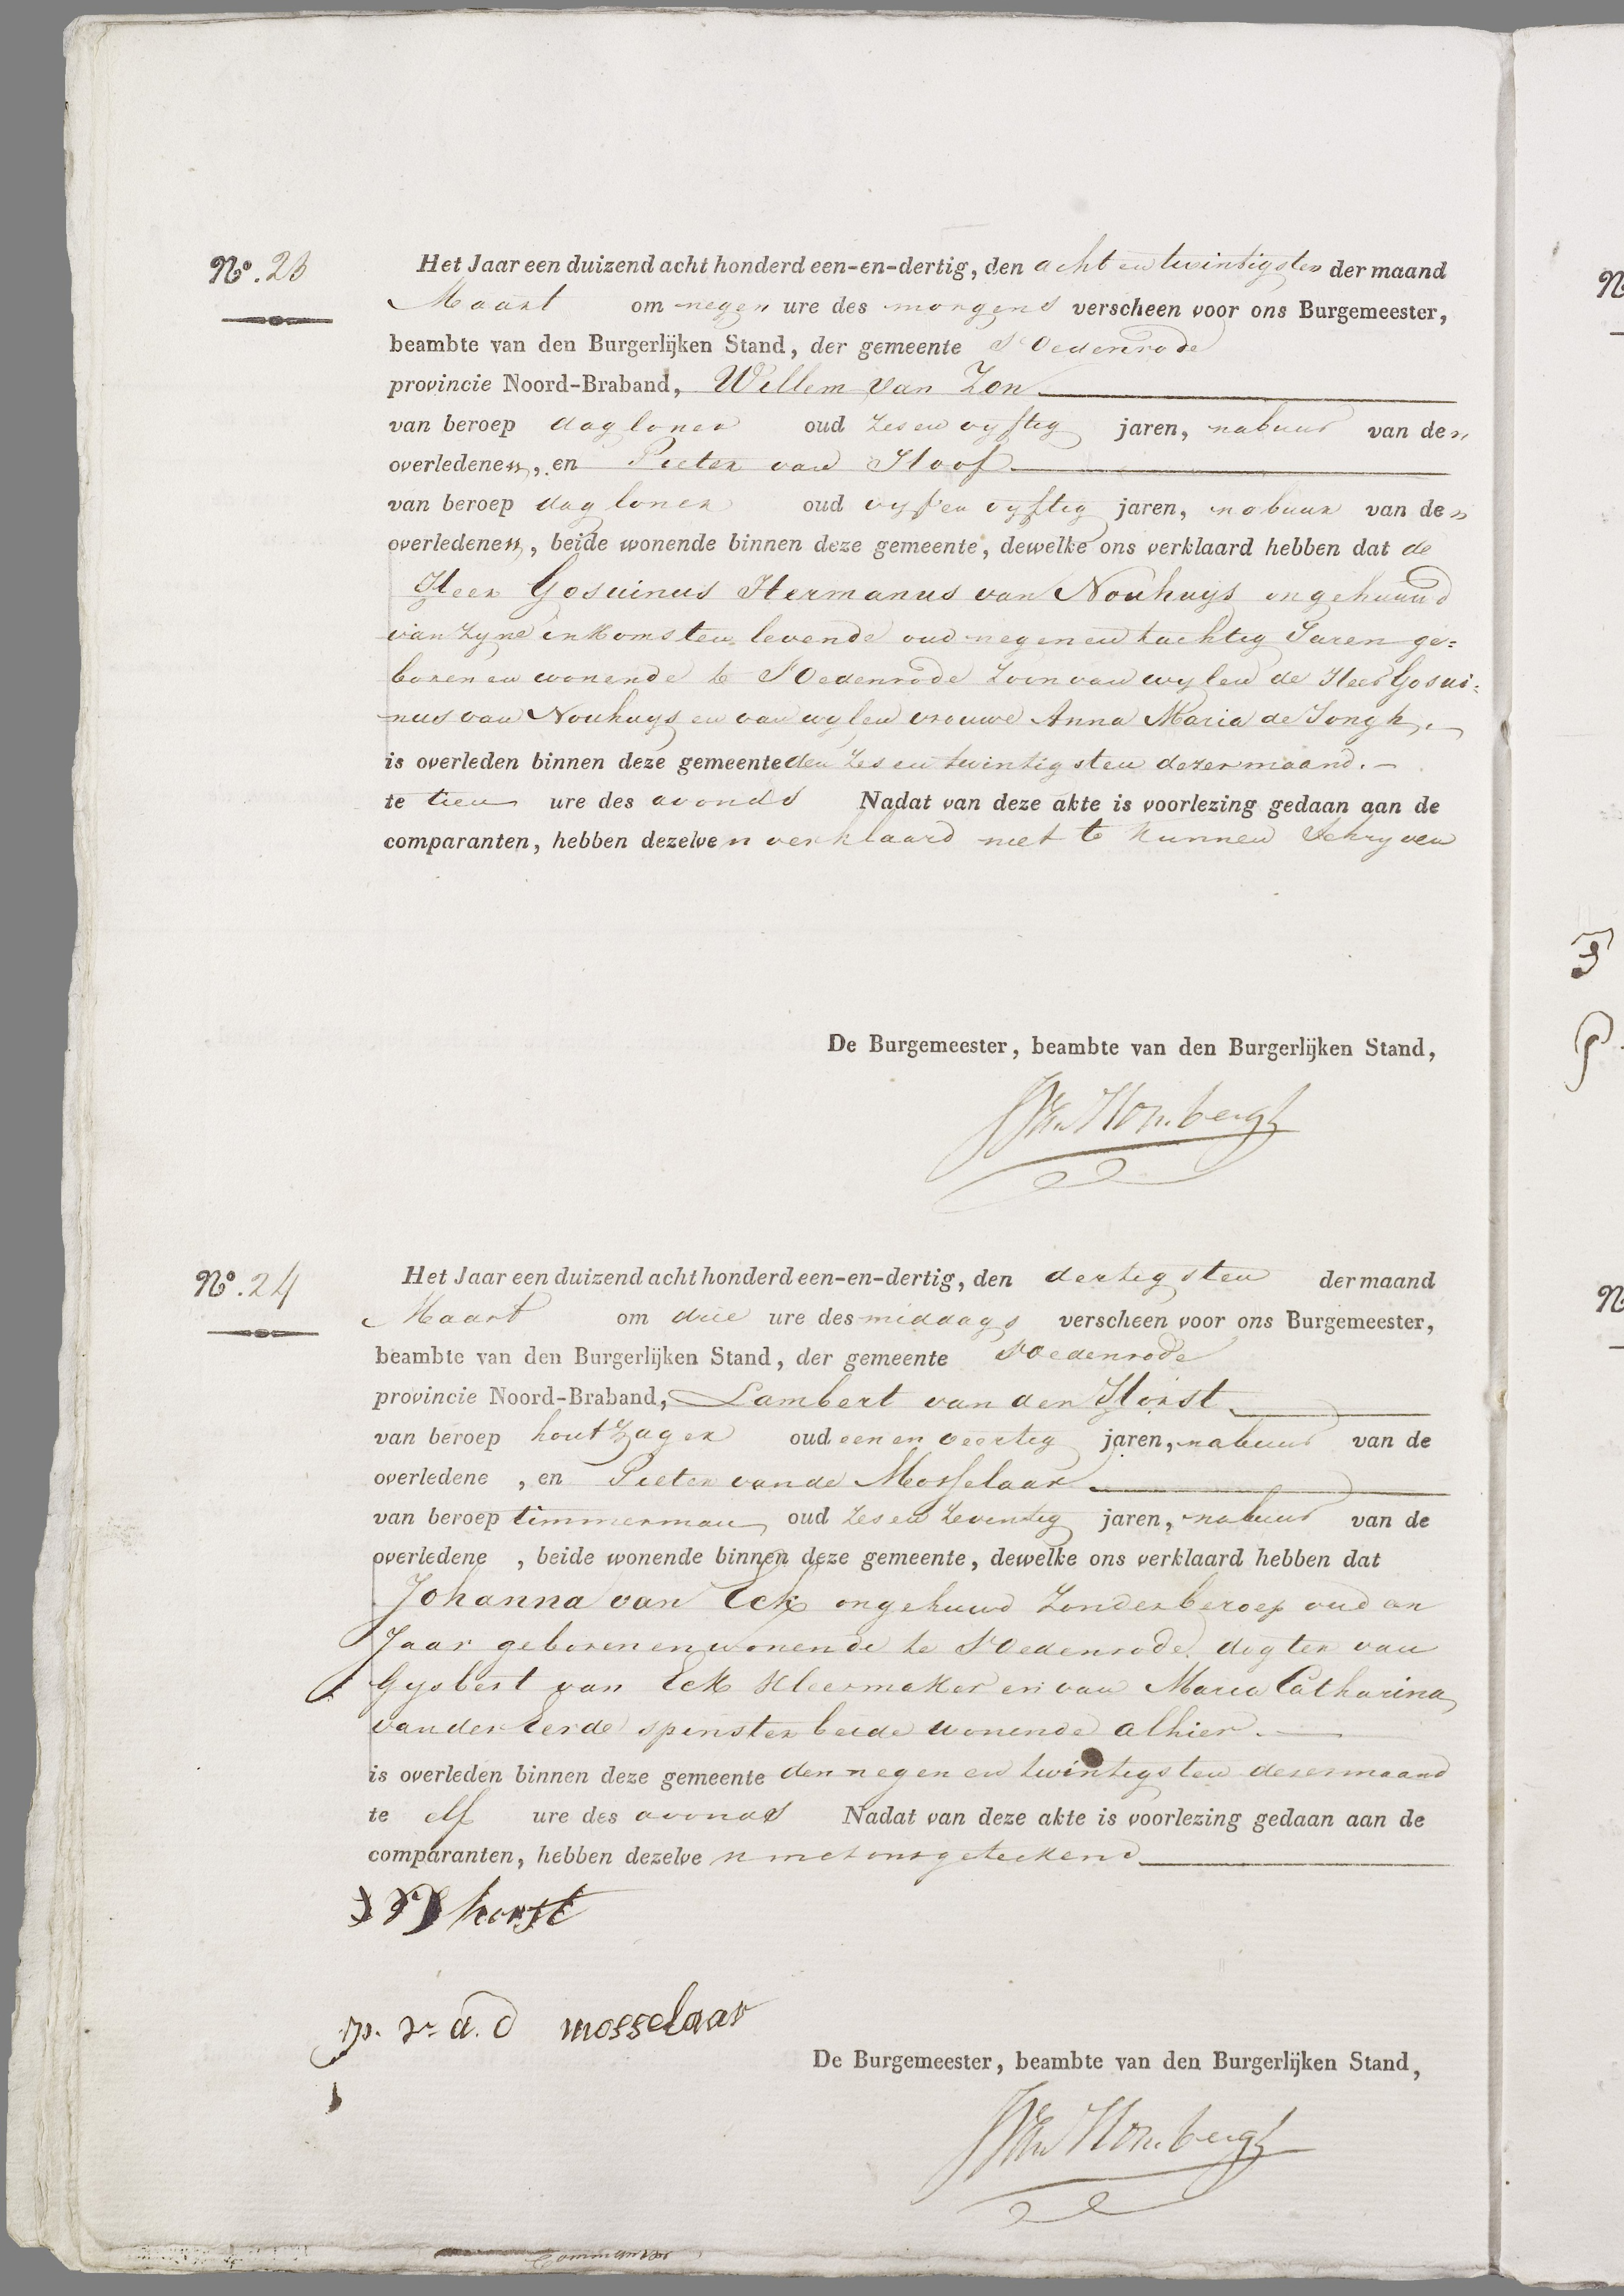 No. 23
Het Jaar een duizend acht honderd een-en-dertig, den acht en twintigsten der maand
Maart om negen ure des morgens verscheen voor ons Burgemeester,
beambte van den Burgerlijken Stand, der gemeente St Oedenrode
provincie Noord-Braband, Willem van Zon
van beroep dagloner oud zes en vyftig jaren, nabuur van den
overledenen, en Pieter van Hoof
van beroep dagloner oud vyf en vyftig jaren, nabuur van den
overledenen, beide wonende binnen deze gemeente, dewelke ons verklaard hebben dat de
Heer Gosuinus Hermanus van Nouhuys ongehuuwd
van zyne inkomsten levende oud negen en tachtig Jaren ge=
boren en wonende te St Oedenrode zoon van wylen de Heer Gosui=
nus van Nouhuys en van wylen vrouwe Anna Maria de Jongh,
is overleden binnen deze gemeente den zes en twintigsten dezer maand.
te tien ure des avonds Nadat van deze akte is voorlezing gedaan aan de
comparanten, hebben dezelven verklaard niet te kunnen schryven
De Burgemeester, beambte van den Burgerlijken Stand,
No. 24
Het Jaar een duizend acht honderd een-en-dertig, den dertigsten der maand
Maart om drie ure des middags verscheen voor ons Burgemeester,
beambte van den Burgerlijken Stand, der gemeente St Oedenrode
provincie Noord-Braband, Lambert van der Horst
van beroep houtzager oud een en veertig jaren, nabuur van de
overledene , en Pieter van de Mosselaar
van beroep timmerman oud zes en zeventig jaren, nabuur van de
overledene , beide wonende binnen deze gemeente, dewelke ons verklaard hebben dat
Johanna van Eck ongehuwd zonder beroep oud een
Jaar geboren en wonende te St Oedenrode dogter van
Gysbert van Eck Kleermaker en van Maria Catharina
van der Eerde spinster beide wonende alhier.
is overleden binnen deze gemeente den negen en twintigsten dezer maand
te elf ure des avonds Nadat van deze akte is voorlezing gedaan aan de
comparanten, hebben dezelven met ons geteekend
horst
p. v. a. d mosselaar
De Burgemeester, beambte van den Burgerlijken Stand,